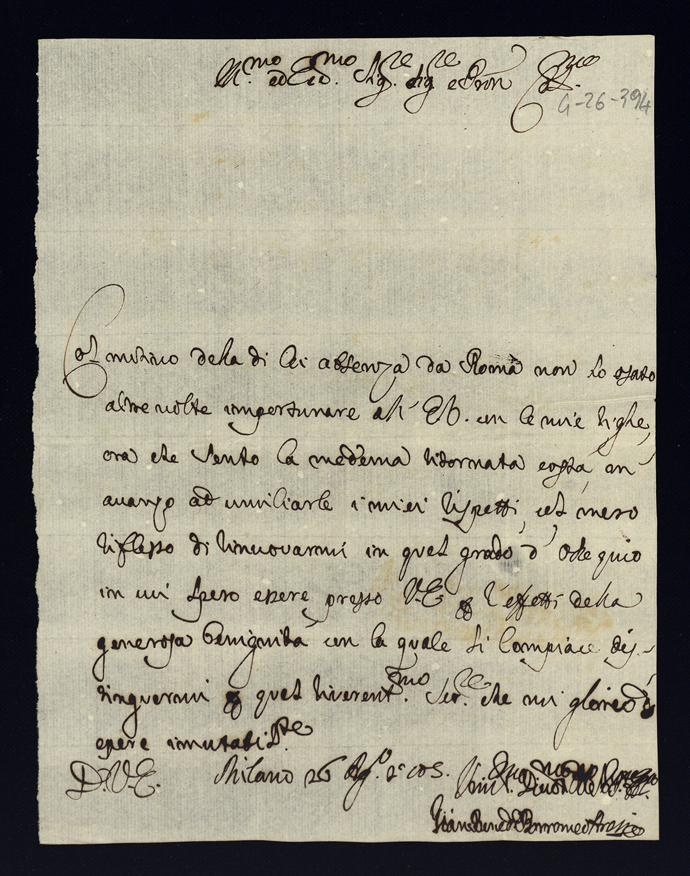 Ill.mo ed Ecc.mo Sig.re Sig.re e Pron
G-26-394
Col motivo della di lei assenza da Roma non ho osato
altre volte importunare all' E.V. con le mie righe,
ora che sento la medema ritornata costà, m'
avanzo ad umiliarle i miei rispetti, col mero
riflesso di rinuovarmi in quel grado d' ossequio
in cui spero essere presso V.E. l'effetti della
generosa benignità con la quale si compiace dis-
tinguermi quel riverent.mo Ser.re che mi glorierò d'
essere immutabil.te
D. V. E. Milano 26 Ag.o
Gian Bened.o Borromeo Arese